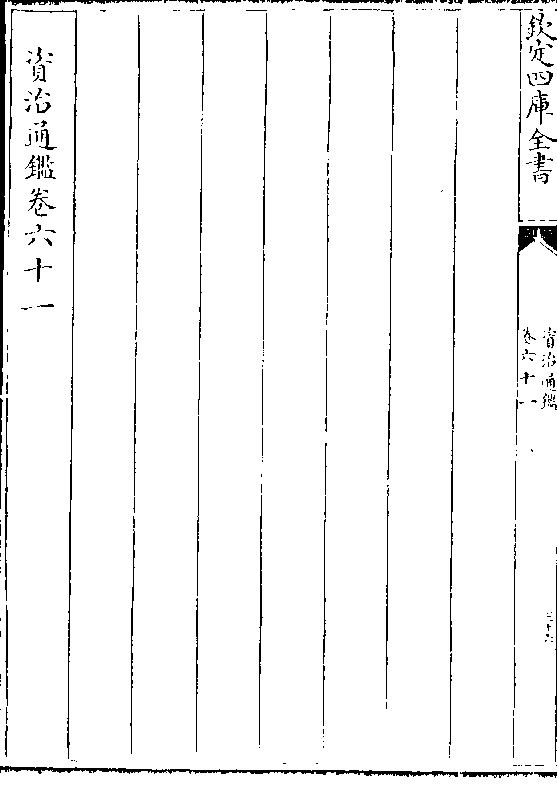 欽定四庫全書
資治通鑑
卷六十一
資治通鑑卷六十一